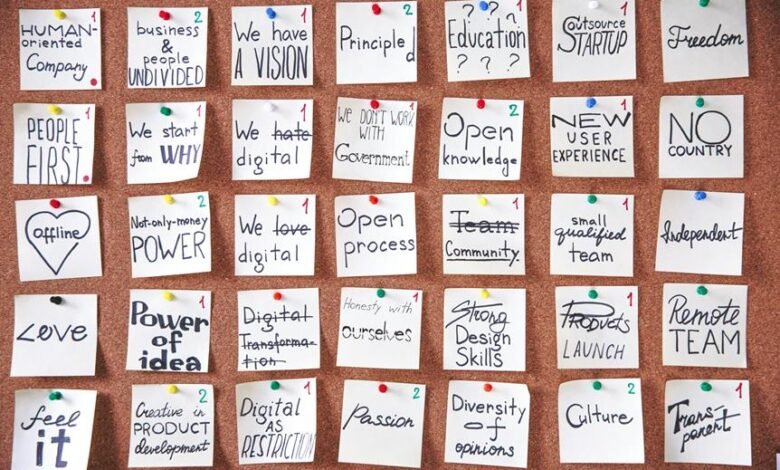 HUMAN-
oriented
Company
2
business
&
people
UNDIVIDED
1
We have
A VISION
2
Principled
1
Education
? ? ?
? ? ?
1
Outsource
STARTUP
Freedom
PEOPLE
FIRST
1
We start
from WHY
1
We hate
digital
1
WE DON'T WORK
WITH
Government
2
Open
knowledge
1
NEW
USER
EXPERIENCE
NO
COUNTRY
offline
2
Not-only-money
POWER
1
We love
digital
Open
process
1
Team
Community
1
small
qualified
team
Independent
LOVE
1
Power
of
idea
1
Digital
Transforma-
tion
1
Honesty with
ourselves
Strong
Design
Skills
1
PRODUCTS
LAUNCH
2
Remote
TEAM
feel
it
2
Creative in
PRODUCT
development
1
Digital
AS
RESTRICTION
2
Passion
1
Diversity
of
opinions
2
Culture
1
Trans
parent